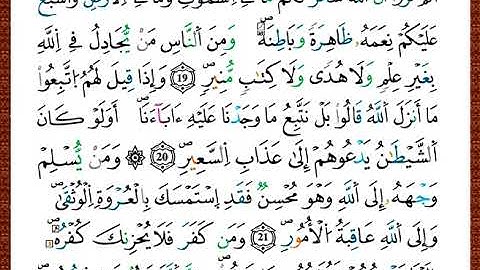 سَخَّرَ لَكُم مَّا فِي اِ۬لسَّمَٰوَٰتِ وَمَا فِي اِ۬لَارْضِ وَأَسْبَغَ
عَلَيْكُمْ نِعَمَهُۥ ظَٰهِرَةً وَبَاطِنَةًۖ وَمِنَ اَ۬لنَّاسِ مَنْ يُّجَٰدِلُ فِي اِ۬للَّهِ
بِغَيْرِ عِلْمٍ وَلَا هُدًى وَلَا كِتَٰبٍ مُّنِيرٍۖ 19 وَإِذَا قِيلَ لَهُمُ اُ۪تَّبِعُواْ
مَا أَنزَلَ اَ۬للَّهُ قَالُواْ بَلْ نَتَّبِعُ مَا وَجَدْنَا عَلَيْهِ ءَابَآءَنَآۖ أَوَلَوْ كَانَ
اَ۬لشَّيْطَٰنُ يَدْعُوهُمُۥٓ إِلَىٰ عَذَابِ اِ۬لسَّعِيرِۖ 20 ۞ وَمَنْ يُّسْلِمْ
وَجْهَهُۥٓ إِلَى اَ۬للَّهِ وَهُوَ مُحْسِنٌ فَقَدِ اِ۪سْتَمْسَكَ بِالْعُرْوَةِ اِ۬لْوُثْقَىٰۖ
وَإِلَى اَ۬للَّهِ عَٰقِبَةُ اُ۬لُامُورِۖ 21 وَمَن كَفَرَ فَلَا يُحْزِنكَ كُفْرُهُۥٓۖ